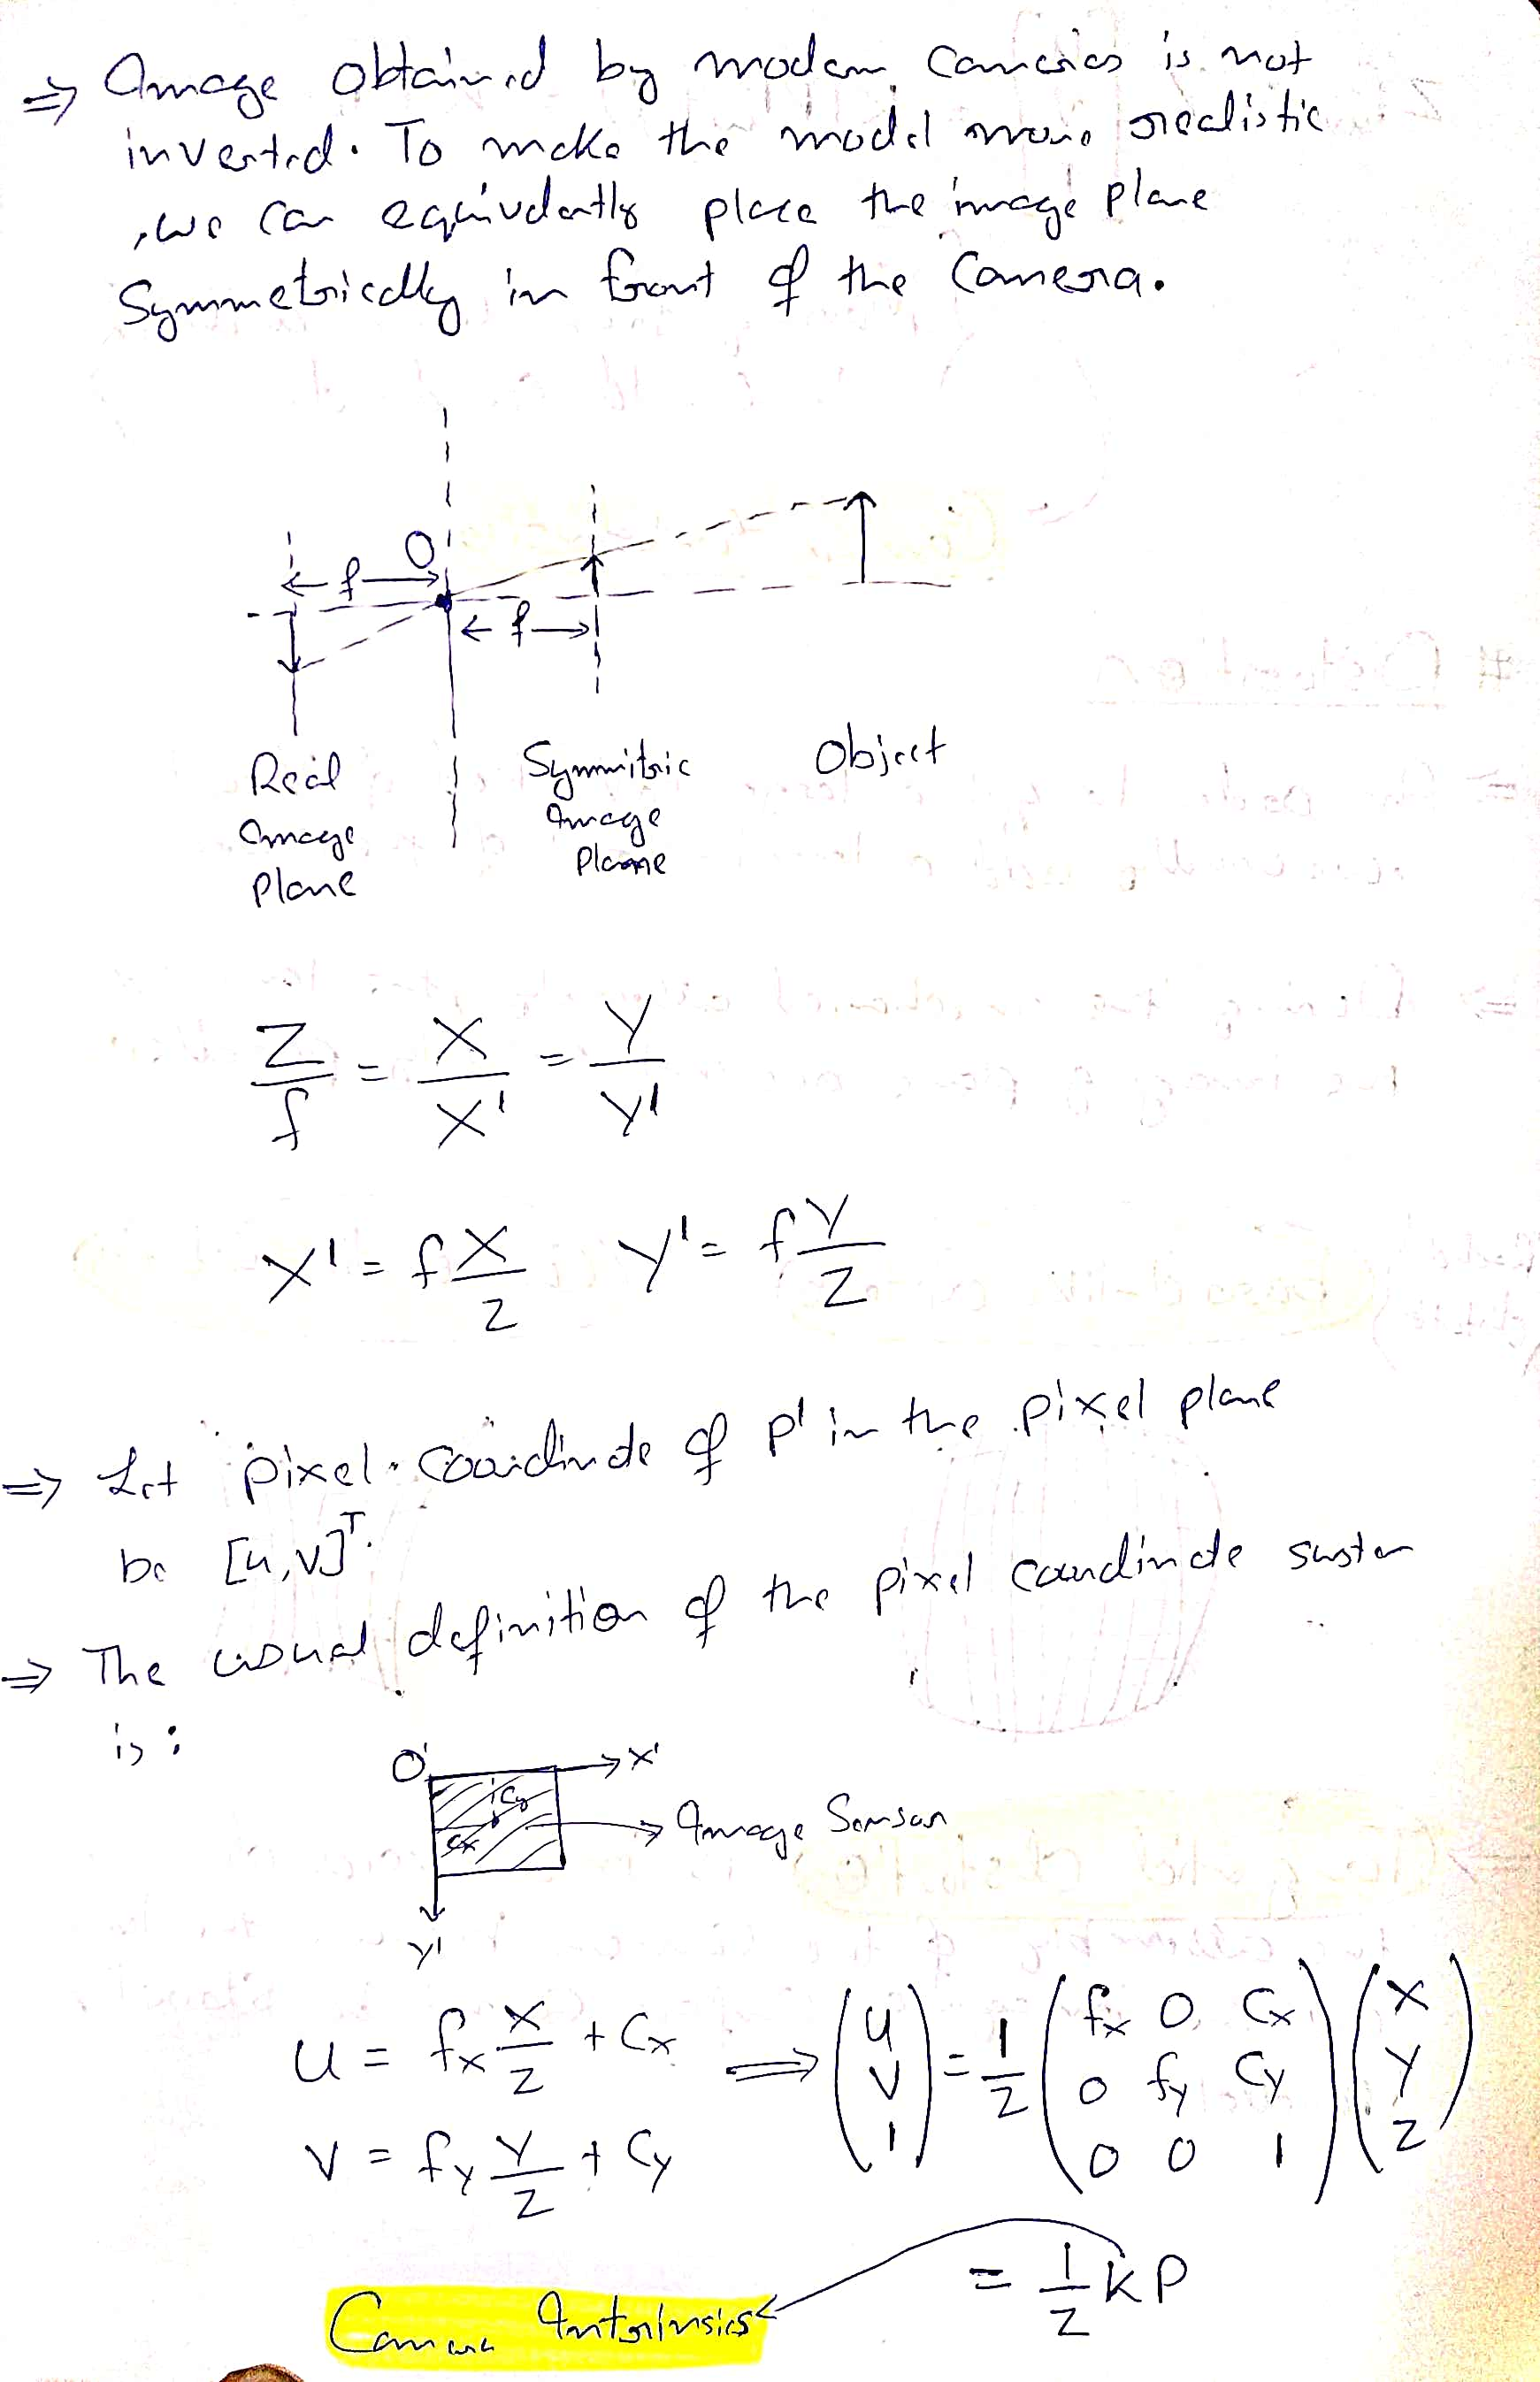 ⇒ Image obtained by modern cameras is not
inverted. To make the model more realistic
, we can equivalently place the image plane
Symmetrically in front of the Camera.
O
f
f
Real Image Plane
Symmitric Image Plane
Object
Z/f = X/X' = Y/Y'
X' = f X/Z   Y' = f Y/Z
⇒ Let pixel coordinate of P' in the pixel plane
be [u,v]ᵀ.
⇒ The usual definition of the pixel coordinate system
is :
O' → X'
Cy
Cx
→ Image Sensor
Y'
u = fx X/Z + Cx ⇒ (u v 1) = 1/Z (fx 0 Cx; 0 fy Cy; 0 0 1) (X Y Z)
v = fy Y/Z + Cy
= 1/Z K P
Camera Intrinsics